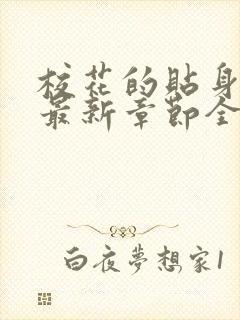 校花的貼身
最新章節全
白夜夢想家1